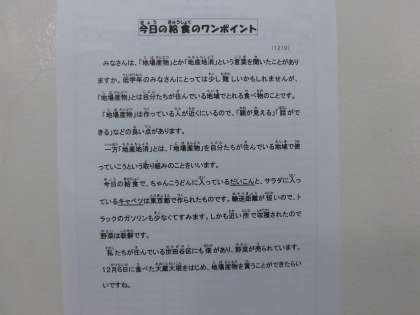 今日の給食のワンポイント
(12/9)
みなさんは、「地場産物」とか「地産地消」という言葉を聞いたことがあり
ますか。低学年のみなさんにとっては少し難しいかもしれませんが、
「地場産物」とは自分たちが住んでいる地域でとれる食べ物のことです。
「地場産物」は作っている人が近くにいるので、「顔が見える」「話がで
きる」などの良い点があります。
一方「地産地消」とは、「地場産物」を自分たちが住んでいる地域で使
っていこうという取り組みのことをいいます。
今日の給食で、ちゃんこうどんに入っているだいこんと、サラダに入っ
ているキャベツは東京都で作られたものです。輸送距離が短いので、ト
ラックのガソリンも少なくてすみます。しかも近い所で収穫されたので
野菜は新鮮です。
私たちが住んでいる世田谷区にも畑があり、野菜が売られています。
12月6日に食べた大蔵大根をはじめ、地場産物を買うことができたらい
いですね。